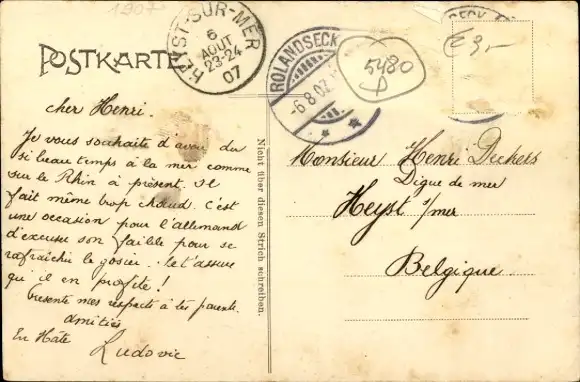 1907
POSTKARTE
HEYST-SUR-MER
6
AOUT
23-24
07
ROLANDSECK
-6.8.07
5480
D
€ 3,-
cher Henri.
Je vous souhaite d'avoir du
si beau temps à la mer comme
sur le Rhin à présent. Il
fait même trop chaud. C'est
une occasion pour l'allemand
d'excuser son faible pour se
rafraîchir le gosier. Je t'assure
qu'il en profite!
Presente mes respects à tes parents.
Amitiés
En Hâte
Ludovic
Nicht über diesen Strich schreiben.
Monsieur Henri Dickers
Digue de mer
Heyst s/mer
Belgique